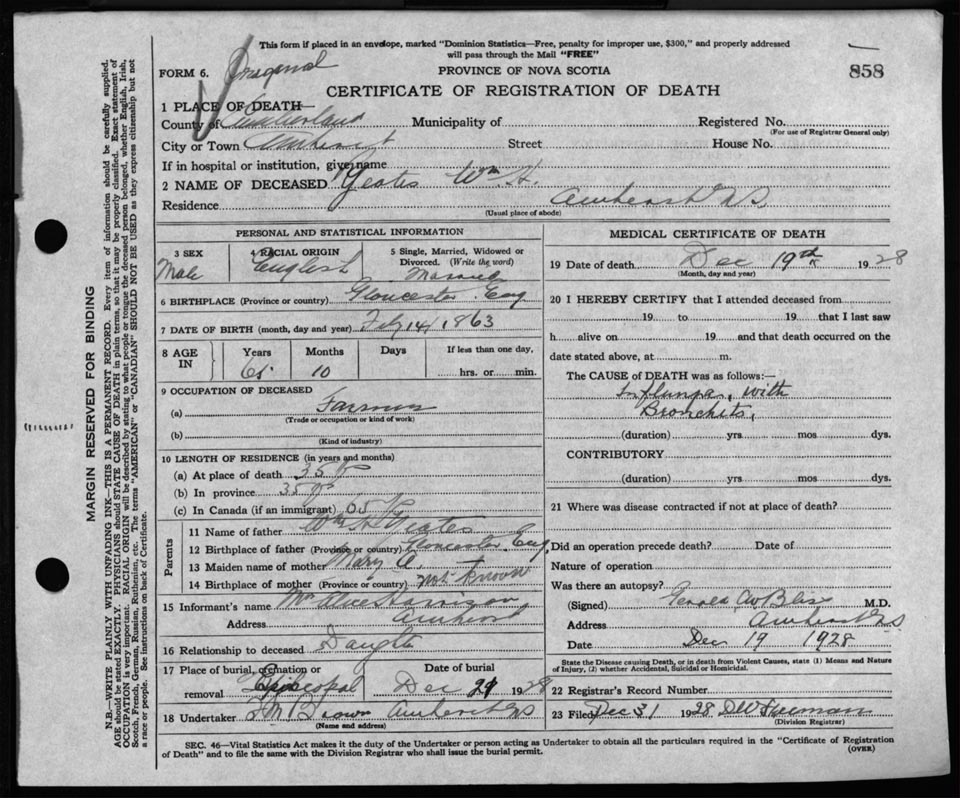 This form if placed in an envelope, marked "Dominion Statistics—Free, penalty for improper use, $300," and properly addressed
will pass through the Mail "FREE"
858
FORM 6.
PROVINCE OF NOVA SCOTIA
CERTIFICATE OF REGISTRATION OF DEATH
1 PLACE OF DEATH—
County of Cumberland Municipality of Registered No.
(For use of Registrar General only)
City or Town Amherst Street House No.
If in hospital or institution, give name
2 NAME OF DECEASED Yeates Wm H.
Residence Amherst N.S.
(Usual place of abode)
PERSONAL AND STATISTICAL INFORMATION
3 SEX 4 RACIAL ORIGIN 5 Single, Married, Widowed or
Divorced. (Write the word)
Male English Married
6 BIRTHPLACE (Province or country) Gloucester Eng
7 DATE OF BIRTH (month, day and year) Feb 14 1863
8 AGE IN Years Months Days If less than one day,
65 10 hrs. or min.
9 OCCUPATION OF DECEASED
(a) Farmer
(Trade or occupation or kind of work)
(b)
(Kind of industry)
10 LENGTH OF RESIDENCE (in years and months)
(a) At place of death 35 yrs
(b) In province 35 yrs
(c) In Canada (if an immigrant)
Parents
11 Name of father Wm H Yeates
12 Birthplace of father (Province or country) Gloucester Eng
13 Maiden name of mother Mary A.
14 Birthplace of mother (Province or country) not known
15 Informant's name Mrs Alice Harrison
Address Amherst
16 Relationship to deceased Daughter
17 Place of burial, cremation or Date of burial
removal Episcopal Dec 21 1928
18 Undertaker Brown Amherst NS
(Name and address)
MEDICAL CERTIFICATE OF DEATH
19 Date of death Dec 19th 1928
(Month, day and year)
20 I HEREBY CERTIFY that I attended deceased from
19 to 19 that I last saw
h alive on 19 and that death occurred on the
date stated above, at m.
The CAUSE of DEATH was as follows:—
Influenza, with
Bronchitis,
(duration) yrs mos dys.
CONTRIBUTORY
(duration) yrs mos dys.
21 Where was disease contracted if not at place of death?
Did an operation precede death? Date of
Nature of operation
Was there an autopsy?
(Signed) Gerald W Bliss M.D.
Address Amherst NS
Date Dec 19 1928
State the Disease causing Death, or in death from Violent Causes, state (1) Means and Nature
of Injury, (2) whether Accidental, Suicidal or Homicidal.
22 Registrar's Record Number
23 Filed Dec 31 1928 D W Freeman
(Division Registrar)
SEC. 46—Vital Statistics Act makes it the duty of the Undertaker or person acting as Undertaker to obtain all the particulars required in the "Certificate of Registration
of Death" and to file the same with the Division Registrar who shall issue the burial permit.
(OVER)
MARGIN RESERVED FOR BINDING
N.B.—WRITE PLAINLY WITH UNFADING INK—THIS IS A PERMANENT RECORD. Every item of information should be carefully supplied.
AGE should be stated EXACTLY. PHYSICIANS should STATE CAUSE OF DEATH in plain terms, so that it may be properly classified. Exact statement of
OCCUPATION is very important. RACIAL ORIGIN will be described by stating to what people or tongue the deceased person belonged, whether English, Irish,
Scotch, French, German, Russian, Ruthenian, etc. The terms "AMERICAN" or "CANADIAN" SHOULD NOT BE USED as they express citizenship but not
a race or people. See instructions on back of Certificate.